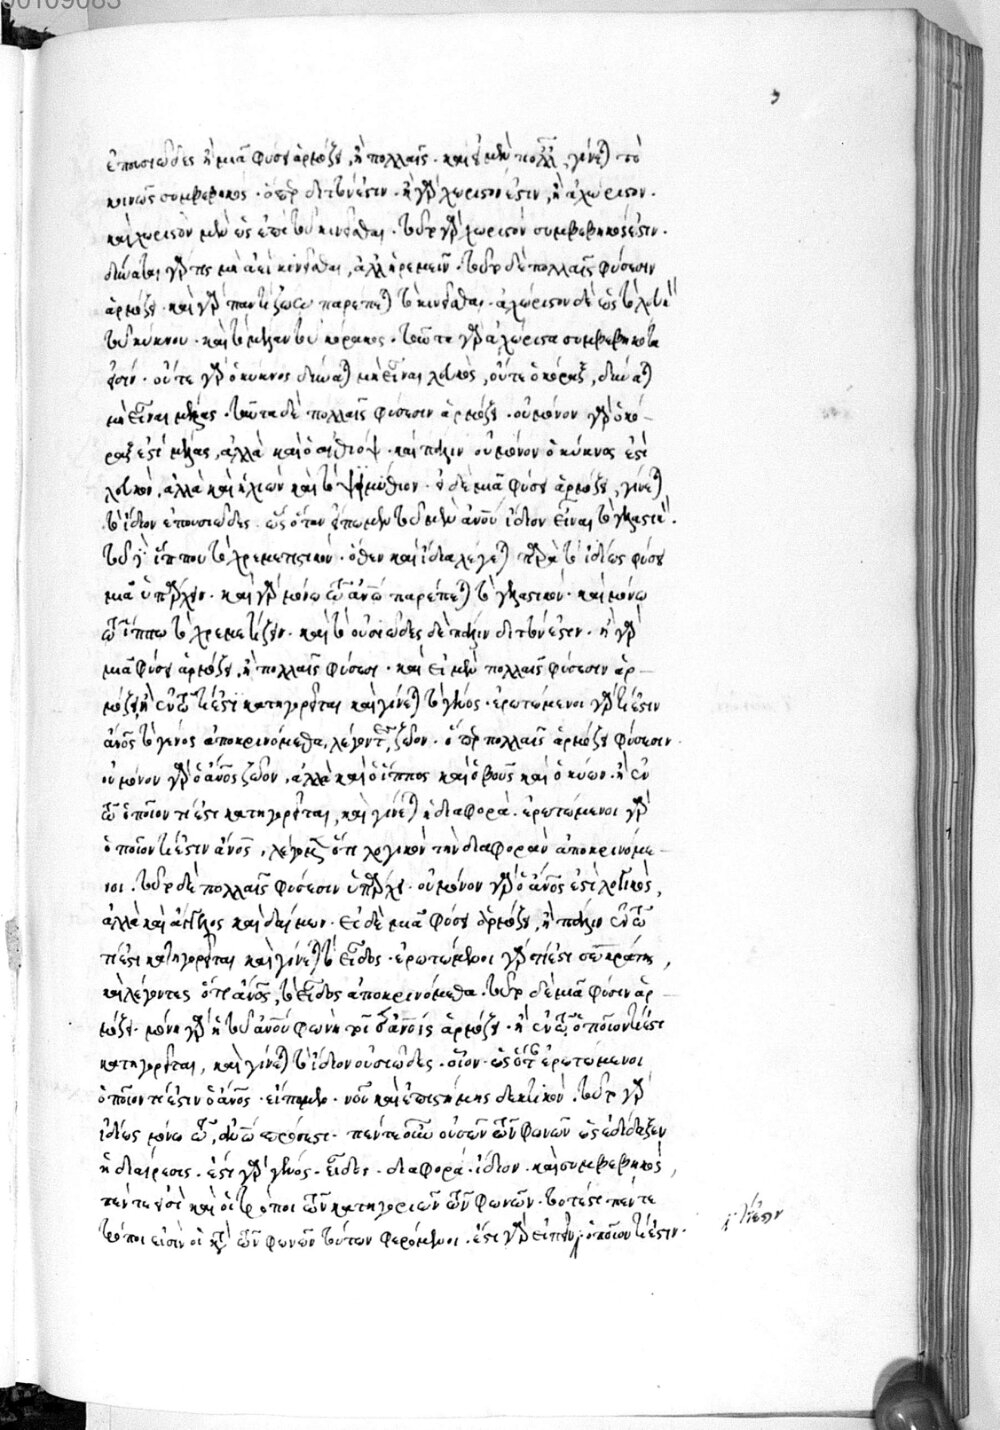 ἐπουσιωδες ἢ μιᾶ φύσει ἁρμόζει, ἢ πολλαῖς· καὶ εἰ μὲν πολλαῖς, γίνεται τὸ
κοινῶς συμβεβηκός· ὅπερ διττόν ἐστιν· ἢ γὰρ χωριστόν ἐστιν, ἢ ἀχώριστον·
καὶ χωριστὸν μὲν ὡς ἐπὶ τοῦ κινεῖσθαι· τοῦτο γὰρ χωριστόν συμβεβηκός ἐστιν·
δύναται γάρ τις μὴ ἀεὶ κινεῖσθαι, ἀλλ' ἠρεμεῖν· τοῦτο δὲ πολλαῖς φύσεσιν
ἁρμόζει· καὶ γὰρ παντὶ ζώω παρέπεται τὸ κινεῖσθαι· ἀχώριστον δὲ ὡς τὸ λευκὸν
τοῦ κύκνου· καὶ τὸ μέλαν τοῦ κόρακος· ταῦτα γὰρ ἀχώριστα συμβεβηκότα
εἰσίν· οὔτε γὰρ ὁ κύκνος δύναται μὴ εἶναι λευκός, οὔτε ὁ κόραξ, δύναται
μὴ εἶναι μέλας· ταῦτα δὲ πολλαῖς φύσεσιν ἁρμόζει· οὐ μόνον γὰρ ὁ κό-
ραξ ἐστὶ μέλας, ἀλλὰ καὶ ὁ αἰθίοψ· καὶ πάλιν οὐ μόνον ὁ κύκνος ἐστὶ
λευκὸν, ἀλλὰ καὶ ἡ χιὼν καὶ τὸ ψιμμίθιον· εἰ δὲ μιᾶ φύσει ἁρμόζει, γίνεται
τὸ ἴδιον ἐπουσιωδες· ὡς ὅταν εἴπωμεν τοῦ μὲν ἀνοῦ ἴδιον εἶναι τὸ γελαστικόν·
τοῦ δὲ ἵππου τὸ χρεμετιστικόν· ὅθεν καὶ ἴδια λέγεται παρὰ τὸ ἰδίως φύσει
μιᾶ ὑπάρχειν· καὶ γὰρ μόνω τῶ ἀνω παρέπεται τὸ γελαστικόν· καὶ μόνω
τῶ ἵππω τὸ χρεμετίζειν· καὶ τὸ οὐσιωδες δὲ πάλιν διττόν ἐστιν· ἢ γὰρ
μιᾶ φύσει ἁρμόζει, ἢ πολλαῖς φύσεσι· καὶ εἰ μὲν πολλαῖς φύσεσιν ἁρ-
μόζει, ἢ ἐν τῶ τί ἐστι κατηγορεῖται καὶ γίνεται τὸ γένος· ἐρωτώμενοι γὰρ τί ἐστιν
ἄνος τὸ γένος ἀποκρινόμεθα, λέγοντες, ζῶον· ὅπερ πολλαῖς ἁρμόζει φύσεσιν·
οὐ μόνον γὰρ ὁ ἄνος ζῶον, ἀλλὰ καὶ ὁ ἵππος καὶ ὁ βοῦς καὶ ὁ κύων· ἢ ἐν
τῶ ὁποῖον τί ἐστι κατηγορεῖται, καὶ γίνεται ἡ διαφορά· ἐρωτώμενοι γὰρ
ὁποῖον τί ἐστιν ἄνος, λέγομεν ὅτι λογικὸν τὴν διαφορὰν ἀποκρινόμε-
νοι· τοῦτο δὲ πολλαῖς φύσεσιν ὑπάρχει· οὐ μόνον γὰρ ὁ ἄνος ἐστὶ λογικός,
ἀλλὰ καὶ ἄγγελος καὶ δαίμων· εἰ δὲ μιᾶ φύσει ἁρμόζει, ἢ πάλιν ἐν τῶ
τί ἐστι κατηγορεῖται καὶ γίνεται τὸ εἶδος· ἐρωτώμενοι γὰρ τί ἐστι σωκράτης,
καὶ λέγοντες ὅτι ἄνος, τὸ εἶδος ἀποκρινόμεθα· τοῦτο δὲ μιᾶ φύσιν ἁρ-
μόζει· μόνη γὰρ ἡ τοῦ ἀνοῦ φωνὴ τοῖς ἀνοις ἁρμόζει· ἢ ἐν τῶ ὁποῖον τί ἐστι
κατηγορεῖται, καὶ γίνεται τὸ ἴδιον οὐσιωδες· οἷον· ὡς ὅταν ἐρωτώμενοι
ὁποῖον τί ἐστιν ὁ ἄνος· εἴπωμεν· νοῦ καὶ ἐπιστήμης δεκτικόν· τοῦτο γὰρ
ἰδίως μόνω τῶ ἀνω πρόσεστι· πέντε οὖν οὐσῶν τῶν φωνῶν ὡς ἐδίδαξεν
ἡ διαίρεσις· ἔστι γὰρ γένος· εἶδος· διαφορά· ἴδιον· καὶ συμβεβηκός,
πέντε εἰσὶ καὶ οἱ τρόποι τῶν κατηγοριῶν τῶν φωνῶν· τουτέστι πέντε
τρόποι εἰσὶν οἱ κατὰ τῶν φωνῶν τούτων φερόμενοι· ἔστι γὰρ εἰπεῖν, ὁποῖον τί ἐστιν·
τί ἐστιν